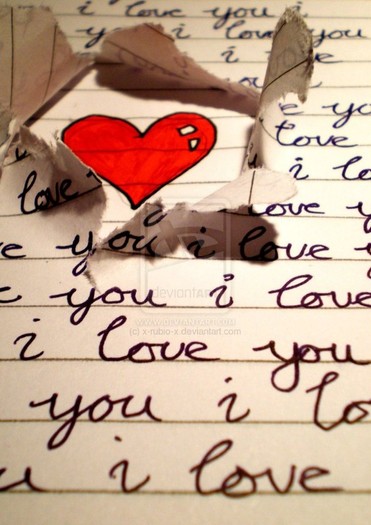 i love you i
you i love you
i
you
e you
love
i lo
love
love you
e you i love y
you i love
deviantART
WWW.DEVIANTART.COM
(c) x-rubio-x.deviantart.com
i love you
you i lo
u i love